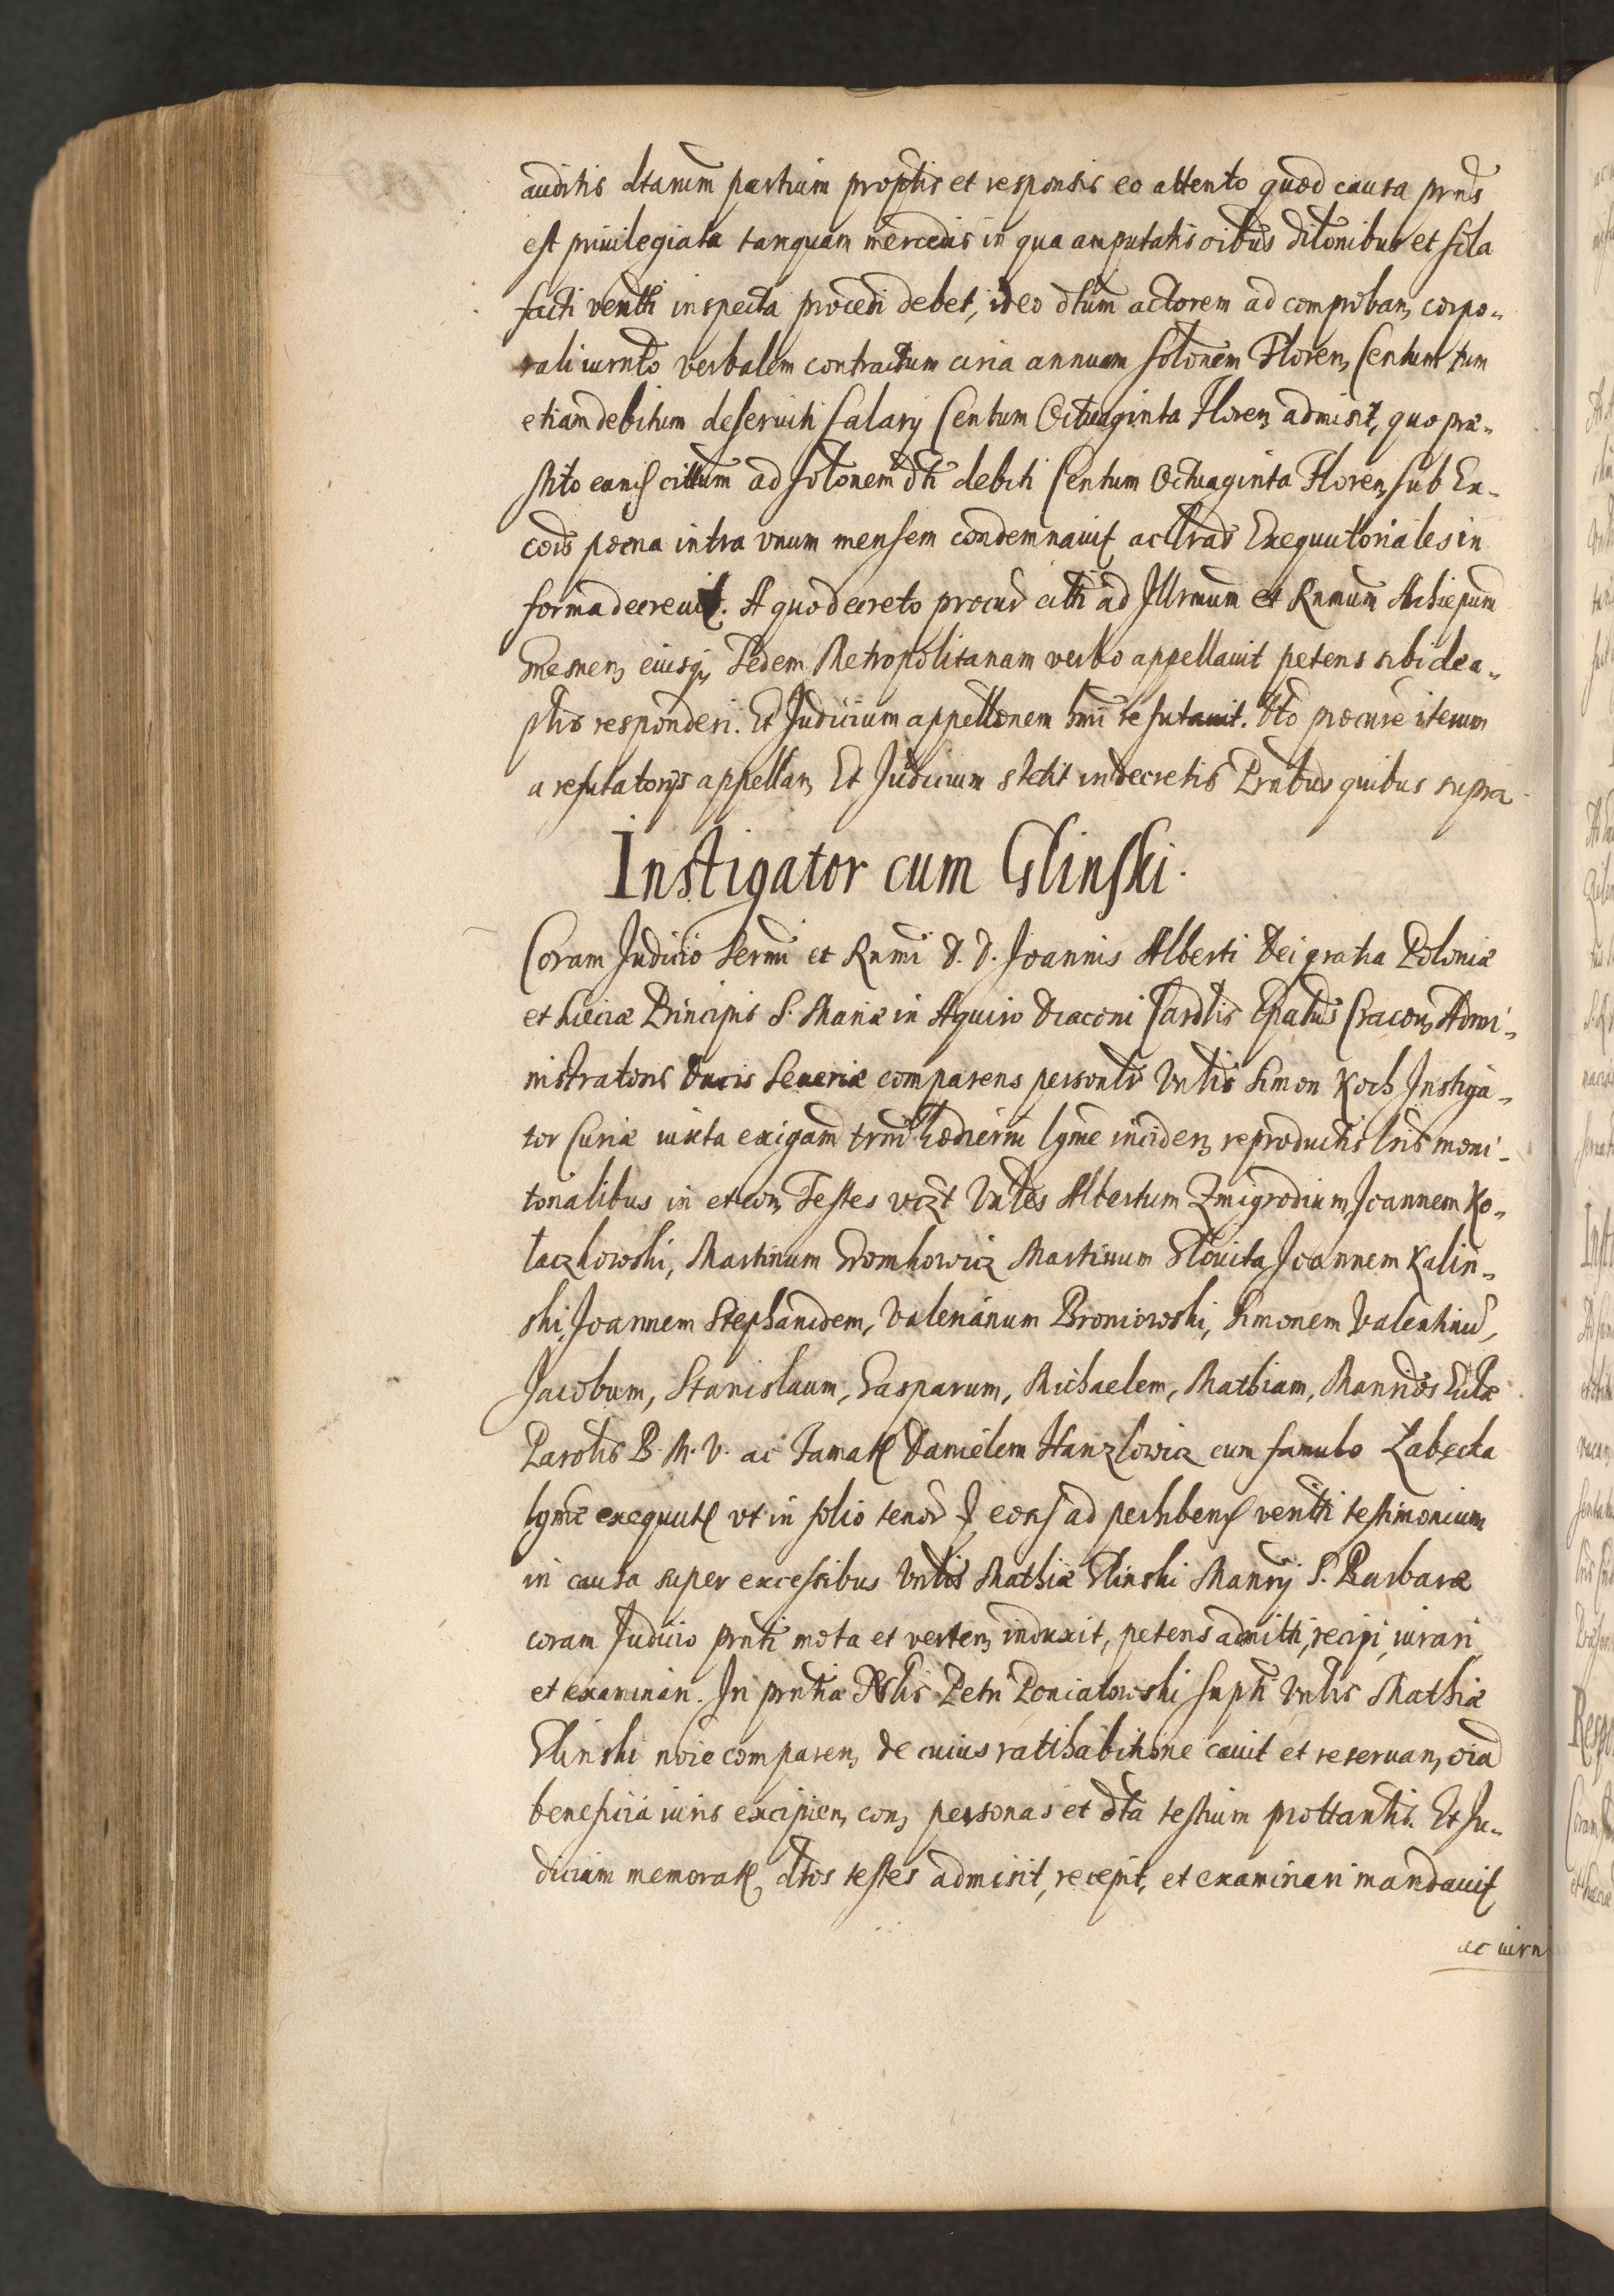 auditis dtarum partium proptis et responsis eo attento quod causa prns
est priuilegiata tanquam mercedis in qua amputatis oibus diltonibus et sola
facti veritti inspecta procedi debet, ideo dtum actorem ad comproban, corpo-
rali iurnto verbalem contractum circa annuam soltonem Floren, Centum tum
etiam debitum deseruiti salarij Centum Octuaginta Floren, admisit, quo præ-
stito cittum ad soltonem dti debiti Centum Octuaginta Floren, sub Ex-
cois poena intra vnum mensem condemnauit ac lras Exequutoriales in
forma decreuit. A quo decreto procur citti ad Illrmum et Rnmum Archiepum
Gnesnen, eiusq, Sedem Metropolitanam verbo appellauit petens sibi de a-
pstlis responderi. Et Judicium appellonem hmi refutauit. Dto procure iterum
a refutatorijs appellan, Et Judicium stetit in decretis Prntibus quibus supra
Instigator cum Glinski.
Coram Judicio Sermi et Rnmi D. D. Joannis Alberti Dei gratia Poloniæ
et Sueciæ Principis S. Mariæ in Aquiro Diaconi Cardlis Epatus Cracou, Admi-
nistratoris Ducis Seueriæ comparens personlr Vnlis Simon Koch Instiga-
tor Curiæ iuxta exigam trmi hodierni lgme inciden, reproductis lris moni-
torialibus in et con, Testes vczt Vnles Albertum Zmigrodium, Joannem Ko-
laczkowski, Martinum Gromkowicz Martinum Slouita Joannem Kalin-
ski, Joannem Stephanidem, Valerianum Broniowski, Simonem Valentinu,
Jacobum, Stanislaum, Gasparum, Michaelem, Mathiam, Mannios Eccliæ
Parolis B. M. V. ac Famat Danielem Hanzlowicz cum famulo Łabęcka
lgme exequut vt in folio tenor eors ad perhiben veritti testimonium
in causa super excessibus Vnlis Mathiæ Glinski Manrij S. Barbaræ
coram Judicio prnti mota et verten, induxit, petens admitti, recipi, iurari
et examinari. In prntia Nlis Petri Poniatowski Supti Vnlis Mathiæ
Glinski noie comparen, de cuius ratihabitione cauit et reseruan, oia
beneficia iuris excipien, con, personas et dta testium prottantis. Et Ju-
dicium memorat, dtos testes admisit, recepit, et examinari mandauit
ac iurn